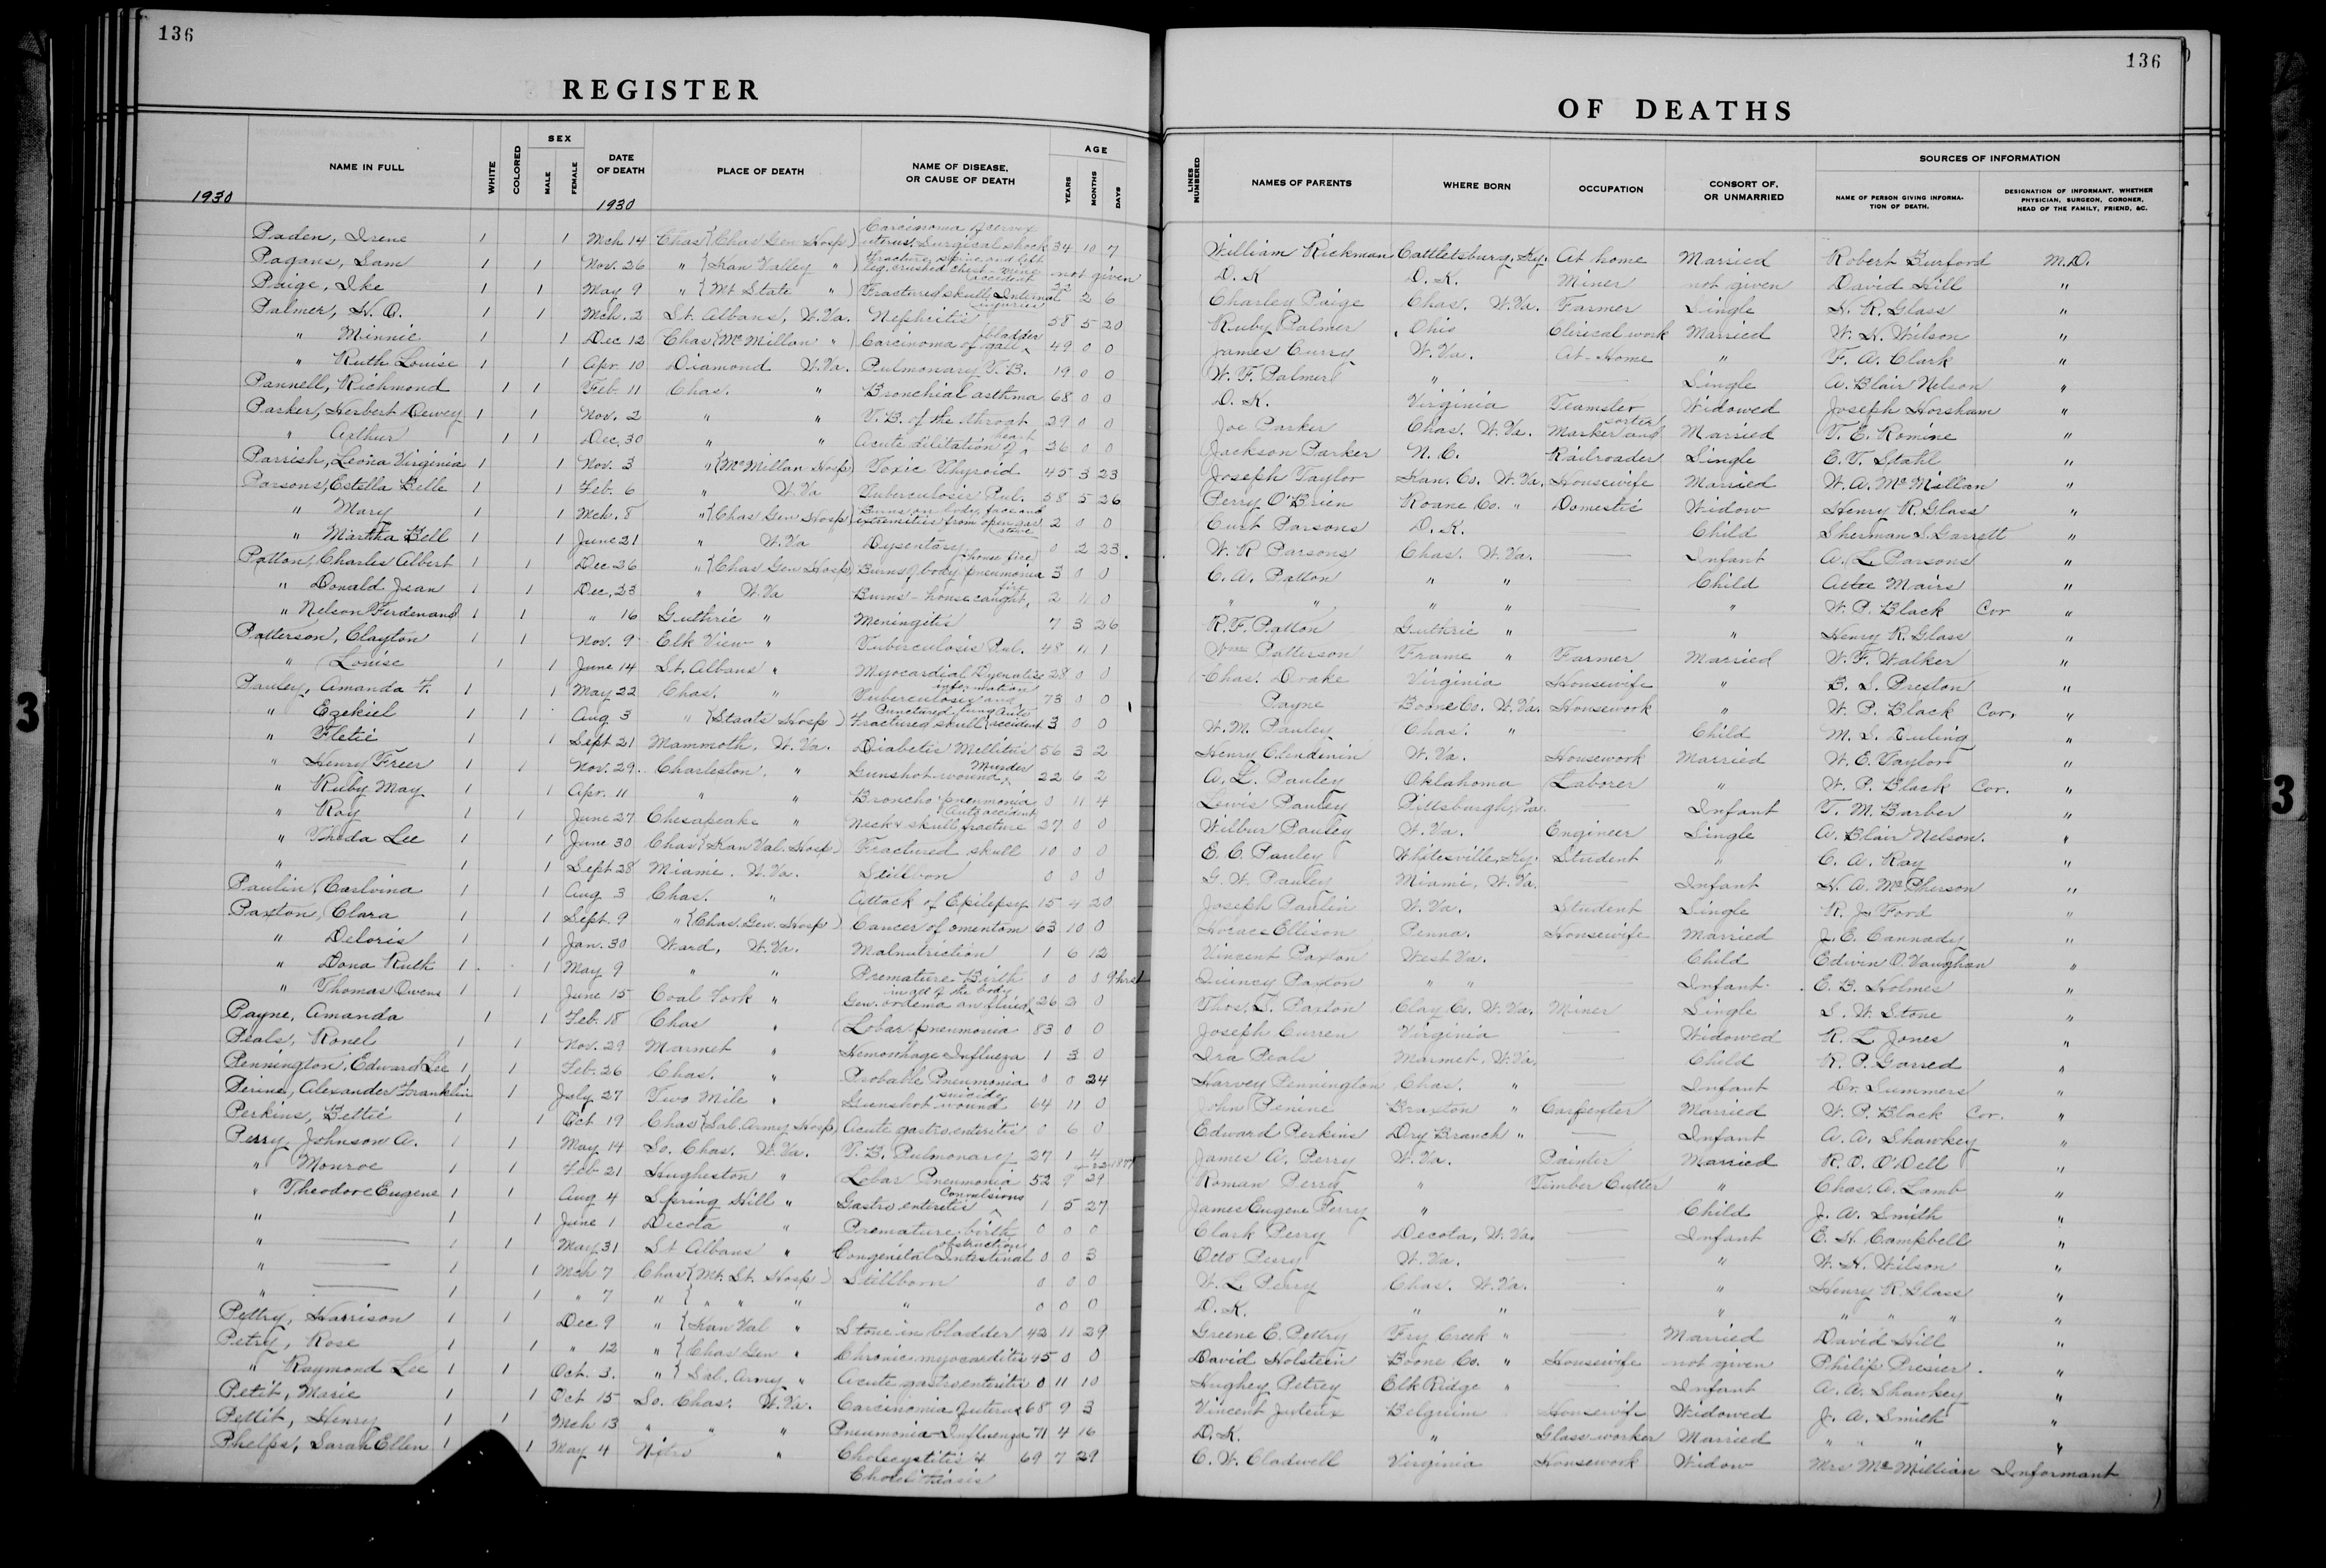 136
REGISTER
NAME IN FULL WHITE COLORED SEX MALE FEMALE DATE OF DEATH PLACE OF DEATH NAME OF DISEASE, OR CAUSE OF DEATH AGE YEARS MONTHS DAYS
1930 1930
Paden, Irene 1 1 Mch 14 Chas (Chas Gen Hosp) Carcinoma of cervix uterus. Surgical shock 34 10 7
Pagans, Sam 1 1 Nov. 26 " (Kan Valley ") Fracture spine and left leg. crushed chest - mine accident not given
Paige, Ike 1 1 May 9 " (Mt State ") Fractured skull Internal injuries 22 2 6
Palmer, H. O. 1 1 Mch. 2 St. Albans, W. Va. Nephritis 58 5 20
" Minnie 1 1 Dec 12 Chas (McMillan ") Carcinoma of gall bladder 49 0 0
" Ruth Louise 1 1 Apr. 10 Diamond W. Va. Pulmonary T. B. 19 0 0
Pannell, Richmond 1 1 Feb. 11 Chas. " Bronchial asthma 68 0 0
Parker, Herbert Dewey 1 1 Nov. 2 " " T. B. of the throat 29 0 0
" Arthur 1 1 Dec. 30 " " Acute dilitation of heart 26 0 0
Parrish, Leona Virginia 1 1 Nov. 3 " (McMillan Hosp) Toxic Thyroid. 45 3 23
Parsons, Estella Belle 1 1 Feb. 6 " W. Va Tuberculosis Pul. 58 5 26
" Mary 1 1 Mch. 8 " (Chas Gen Hosp) Burns on body, face and extremities from open gas stove 2 0 0
" Martha Bell 1 1 June 21 " W. Va Dysentary 0 2 23
Patton, Charles Albert 1 1 Dec 26 " (Chas Gen Hosp) Burns of body pneumonia (house fire) 3 0 0
" Donald Jean 1 1 Dec, 23 " W. Va Burns - house caught fire 2 11 0
" Nelson Ferdenand 1 1 " 16 Guthrie " Meningitis 7 3 26
Patterson, Clayton 1 1 Nov. 9 Elk View " Tuberculosis Pul. 48 11 1
" Louise 1 1 June 14 St. Albans " Myocardial 28 0 0
Pauley, Amanda F. 1 1 May 22 Chas. " Tuberculosis and 73 0 0
" Ezekiel 1 1 Aug 3 " (Staats Hosp) Punctured lung Auto Fractured skull accident 3 0 0
" Fletie 1 1 Sept 21 Mammoth, W. Va. Diabetis Mellitus 56 3 2
" Henry Freer 1 1 Nov. 29. Charleston. " Gunshot wound Murder 22 6 2
" Ruby May 1 1 Apr. 11 " " Broncho pneumonia 0 11 4
" Roy 1 1 June 27 Chesapeake " Neck & skull fracture Auto accident 27 0 0
" Theda Lee 1 1 June 30 Chas (Kan Val. Hosp) Fractured skull 10 0 0
" — 1 1 Sept 28 Miami. W. Va. Stillborn 0 0 0
Paulin, Carlvina 1 1 Aug 3 Chas. " Attack of Epilepsy 15 4 20
Paxton, Clara 1 1 Sept. 9 " (Chas. Gen. Hosp) Cancer of omentom 63 10 0
" Deloris 1 1 Jan. 30 Ward, W. Va. Malnutriction 1 6 12
" Dona Ruth 1 1 May 9 " " Premature Birth 0 0 0 9 hrs
" Thomas Owens 1 1 June 15 Coal Fork " Gen. oedema an fluid in all of the body 26 2 0
Payne, Amanda 1 1 Feb. 18 Chas " Lobar pneumonia 83 0 0
Peals, Ronel 1 1 Nov. 29 Marmet " Hemorrhage Influeza 1 3 0
Pennington, Edward Lee 1 1 Feb. 26 Chas. " Probable Pneumonia 0 0 24
Perine, Alexander Franklin 1 July 27 Two Mile " Gunshot wound suicide 64 11 0
Perkins, Bettie 1 1 Oct 19 Chas (Sal. Army Hosp) Acute gastro enteritis 0 6 0
Perry, Johnson A. 1 1 May 14 So. Chas. W. Va. T. B. Pulmonary 27 1 4
" Monroe 1 1 Feb 21 Hugheston " Lobar Pneumonia 52 9 29
" Theodore Eugene 1 1 Aug 4 Spring Hill " Gastro enteritis Convulsions 1 5 27
" 1 1 June 1 Decota " Premature birth 0 0 0
" — 1 1 May 31 St Albans " Congenital Intestinal obstruction 0 0 3
" — 1 1 Mch 7 Chas (Mt. St. Hosp) Stillborn 0 0 0
" — 1 1 " 7 " ( " " " " 0 0 0
Pettry, Harrison 1 1 Dec 9 " (Kan Val " Stone in bladder 42 11 29
Petry, Rose 1 1 " 12 " (Chas Gen " Chronic myocarditis 45 0 0
" Raymond Lee 1 1 Oct. 3. " (Sal. Army " Acute gastro enteritis 0 11 10
Petit, Marie 1 1 Oct 15 So. Chas. W. Va. Carcinomia of uterus 68 9 3
Pettit, Henry 1 1 Mch 13 " " " Pneumonia - Influenza 71 4 16
Phelps, Sarah Ellen 1 1 May 4 Nitro " Cholecystitis & 69 7 29
136
OF DEATHS
LINES NUMBERED NAMES OF PARENTS WHERE BORN OCCUPATION CONSORT OF, OR UNMARRIED SOURCES OF INFORMATION NAME OF PERSON GIVING INFORMATION OF DEATH. DESIGNATION OF INFORMANT, WHETHER PHYSICIAN, SURGEON, CORONER, HEAD OF THE FAMILY, FRIEND, &C.
William Richman Cattletsburg, Ky. At home Married Robert Burford M.D.
D. K D. K. Miner not given David Hill "
Charley Paige Chas. W. Va. Farmer Single H. R. Glass "
Ruby Palmer Ohio Clerical work Married W. H. Wilson "
James Curry W. Va. At-Home " F. A. Clark "
W. F. Palmer " — Single A. Blair Nelson "
D. K. Virginia Teamster Widowed Joseph Horsham "
Joe Parker Chas. W. Va. Marker and sorter Married T. E. Romine "
Jackson Parker N. C. Railroader Single E. T. Stahl "
Joseph Taylor Kan. Co. W. Va. Housewife Married W. A. McMillan "
Perry O'Brien Roane Co. " Domestic Widow Henry R. Glass "
Curt Parsons D. K. — Child Sherman S. Garrett "
W. R Parsons Chas. W. Va. — Infant A. L. Parsons "
C. A. Patton " " — Child Attee Mairs "
" " " " — " W. P. Black Cor "
R. F. Patton Guthrie " — " Henry R. Glass "
Wm Patterson Frame " Farmer Married W. F. Walker "
Chas. Drake Virginia Housewife " B. S. Preston "
Payne Boone Co. W. Va. Housework W. P. Black Cor. "
W. M. Pauley Chas. " — Child M. S. Duling "
Henry Clendinin W. Va. Housework Married W. E. Taylor "
A. L. Pauley Oklahoma Laborer " W. P. Black Cor. "
Lewis Pauley Pittsburgh, Pa. — Infant T. M. Barber "
Wilbur Pauley W. Va. Engineer Single A. Blair Nelson. "
E. C. Pauley Whitesville, Ky. Student " C. A. Ray "
G. W. Pauley Miami, W. Va. — Infant H. A. McPherson "
Joseph Paulin W. Va. Student Single R. J. Ford "
Horace Ellison Penna. Housewife Married J. E. Cannady "
Vincent Paxton West Va. Child Edwin O. Vaughan "
Quincy Paxton " " Infant. E. B. Holmes "
Thos. S. Paxton Clay Co. W. Va. Miner Single S. W. Stone "
Joseph Curren Virginia Widowed R. L Jones "
Ira Peals Marmet, W. Va. Child R. P. Garred "
Harvey Pennington Chas. " Infant Dr. Summers "
John Penine Braxton " Carpenter Married W. P. Black Cor. "
Edward Perkins Dry Branch " — Infant A. A. Shawkey "
James A. Perry W. Va. Painter Married R. O. O'Dell "
Roman Perry " Timber Cutter " Chas. A. Lamb "
James Eugene Perry " — Child J. A. Smith "
Clark Perry Decota, W. Va. — Infant E. H. Campbell "
Otto Perry W. Va. " W. H. Wilson "
W. L Perry Chas. W. Va. " Henry R. Glass "
D. K. " " " " " " "
Greene E. Pettry Fry Creek " — Married David Hill "
David Holstein Boone Co. " Housewife not given Philip Presier. "
Hughey Petrey Elk Ridge " — Infant A. A. Shawkey "
Vincent Belgium Housewife Widowed J. A. Smith "
D. K. " Glass worker Married " " " "
C. W. Cladwell Virginia Housework Widow Mrs McMillian Informant
3
3